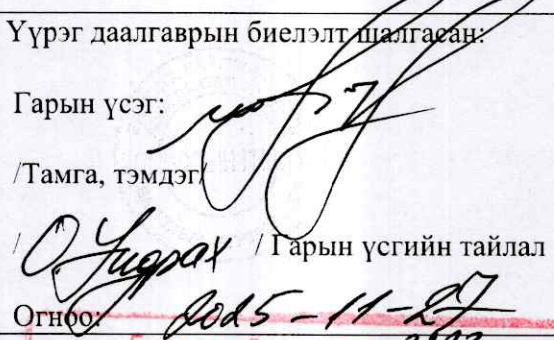 Үүрэг даалгаврын биелэлт шалгасан:
Гарын үсэг:
/Тамга, тэмдэг/
/ О. Ундрах / Гарын үсгийн тайлал
Огноо: 2025-11-27